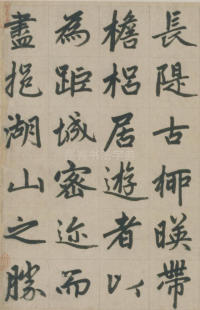 長隄古柳暎帶
檐梠居遊者以
為距城密迩而
盡挹湖山之勝